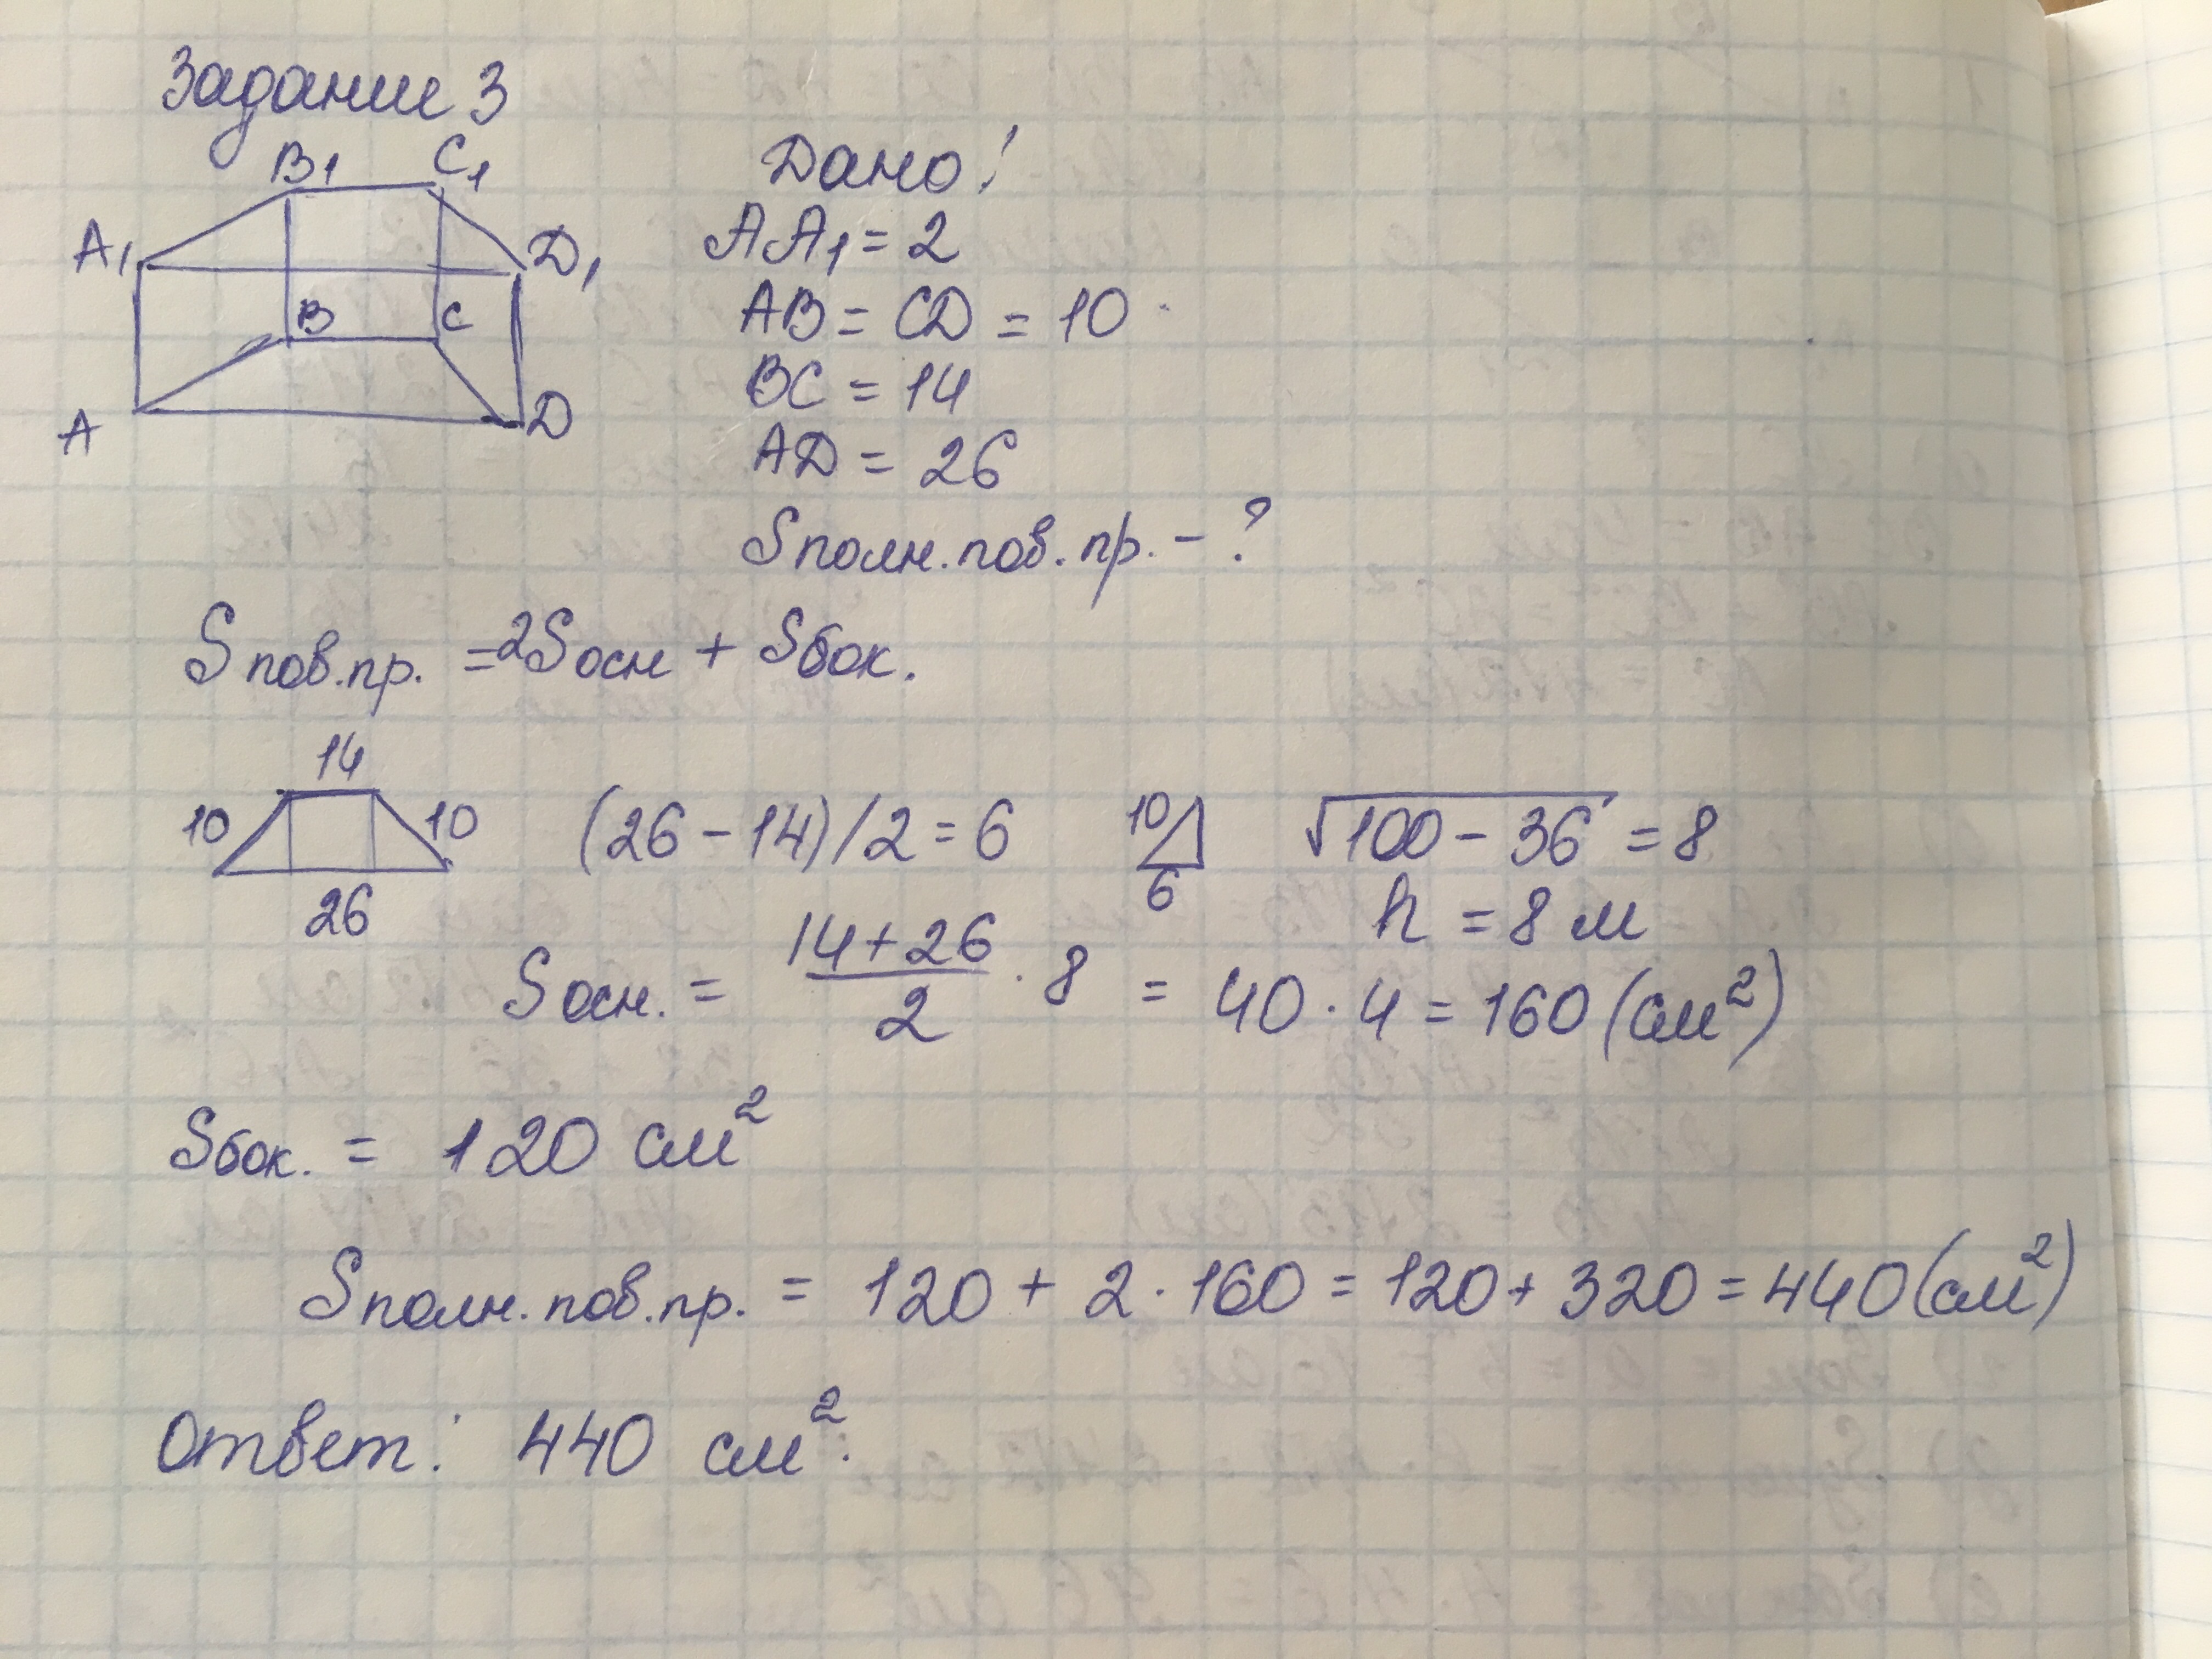 Задание 3
B1 C1
A1 D1
B C
A D
Дано:
AA1 = 2
AB = CD = 10
BC = 14
AD = 26
Sполн.пов.пр. - ?
Sпов.пр. = 2Sосн + Sбок.
14
10 10 (26 - 14)/2 = 6 10 √100 - 36 = 8
26 6 h = 8 м
Sосн. = 14+26/2 · 8 = 40 · 4 = 160 (см²)
Sбок. = 120 см²
Sполн.пов.пр. = 120 + 2 · 160 = 120 + 320 = 440 (см²)
Ответ: 440 см².